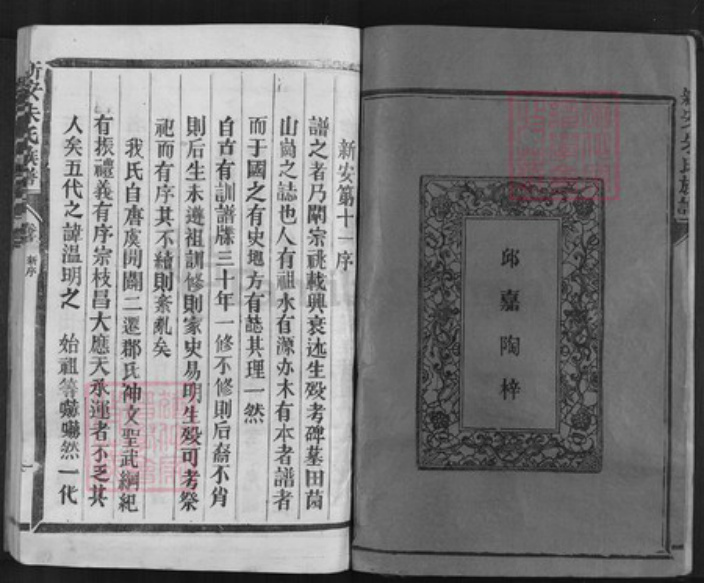 邱嘉陶梓
新安第十一序
譜之者乃闡宗祧載興衰迹生殁考碑墓田茵
山崗之誌也人有祖水有源亦木有本者譜者
而于國之有史地方有誌其理一然
自古有訓譜牒三十年一修不修則后裔不肖
則后生未遵祖訓修則家史易明生殁可考祭
祀而有序其不續則紊亂矣
我氏自唐虞開闢二遷郡氏神文聖武綱紀
有振禮義有序宗枝昌大應天承運者不乏其
人矣五代之諱溫明之 始祖等 然一代
新安朱氏族譜
新序
一